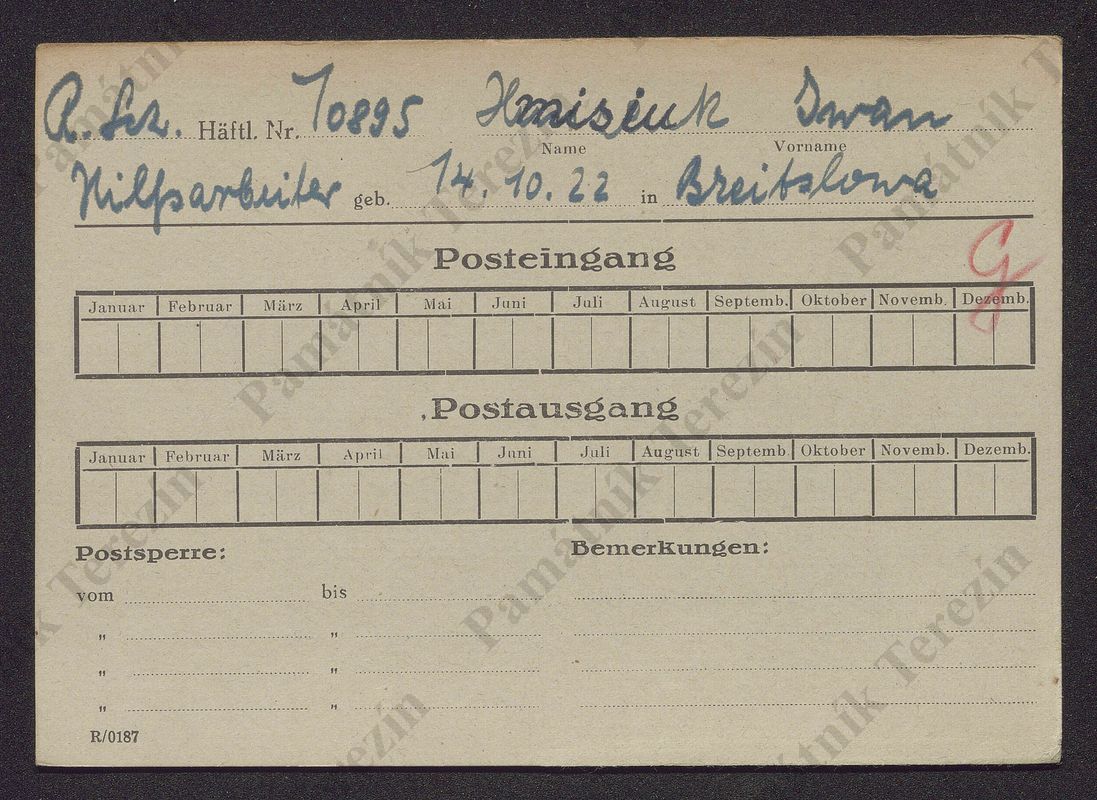 R. Sch. Häftl. Nr. 10895 Hmisiuk Iwan
Name Vorname
Hilfsarbeiter geb. 14. 10. 22 in Breitslowa
G
Posteingang
Januar Februar März April Mai Juni Juli August Septemb. Oktober Novemb. Dezemb.
Postausgang
Januar Februar März April Mai Juni Juli August Septemb. Oktober Novemb. Dezemb.
Postsperre: Bemerkungen:
vom bis
" "
" "
" "
R/0187
Památník Terezín